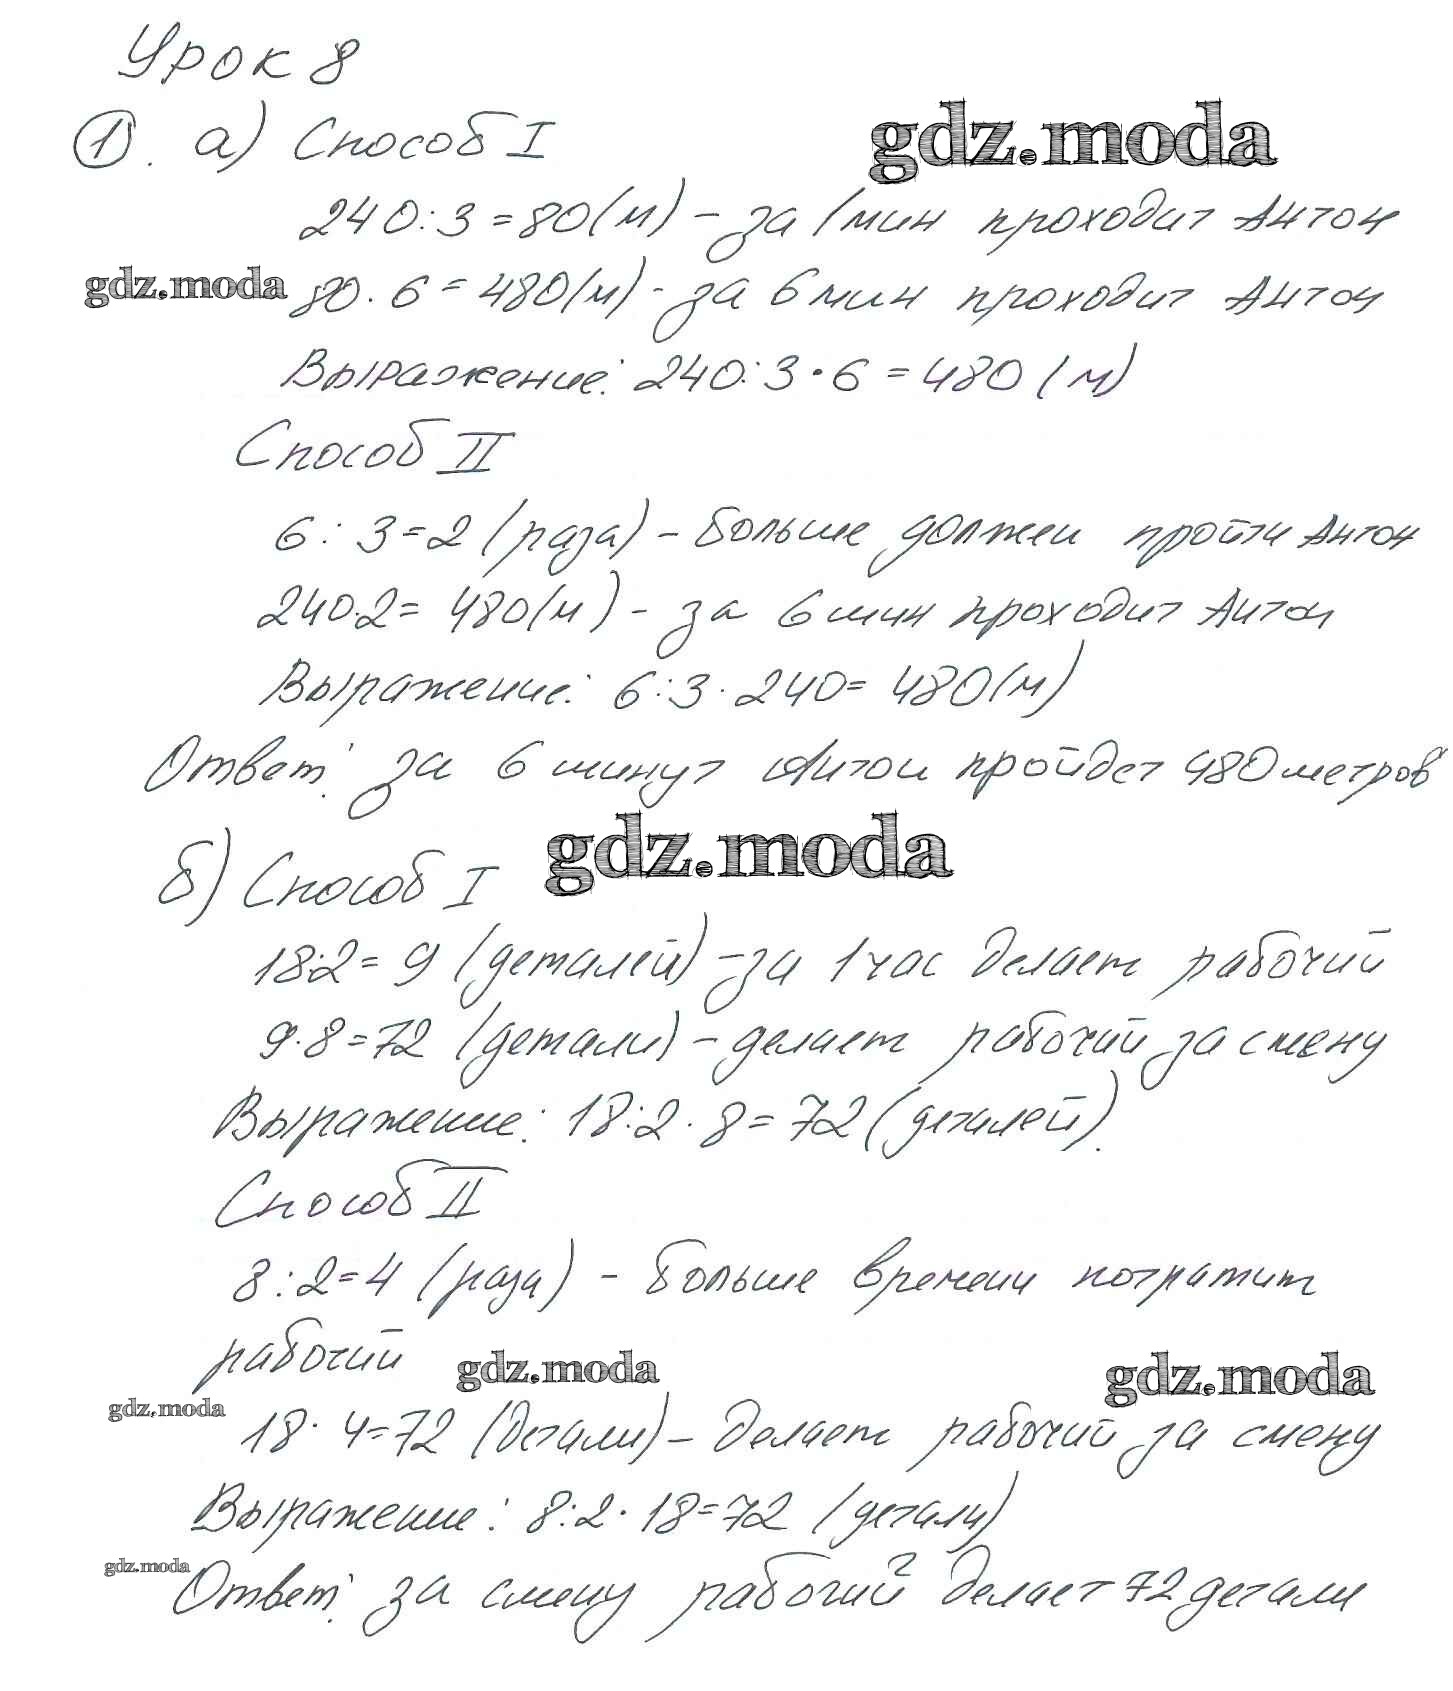 Урок 8
1. а) Способ I
gdz.moda
240:3=80(м) - за 1 мин проходит Антон
gdz.moda
80·6=480(м) - за 6 мин проходит Антон
Выражение: 240:3·6=480 (м)
Способ II
6:3=2 (раза) - больше должен пройти Антон
240·2=480(м) - за 6 мин проходит Антон
Выражение: 6:3·240=480(м)
Ответ: за 6 минут Антон пройдет 480 метров
gdz.moda
б) Способ I
18:2=9 (деталей) - за 1 час делает рабочий
9·8=72 (детали) - делает рабочий за смену
Выражение: 18:2·8=72 (деталей).
Способ II
8:2=4 (раза) - больше времени потратит
рабочий
gdz.moda
gdz.moda
gdz.moda
18·4=72 (детали) - делает рабочий за смену
Выражение: 8:2·18=72 (детали)
gdz.moda
Ответ: за смену рабочий делает 72 детали